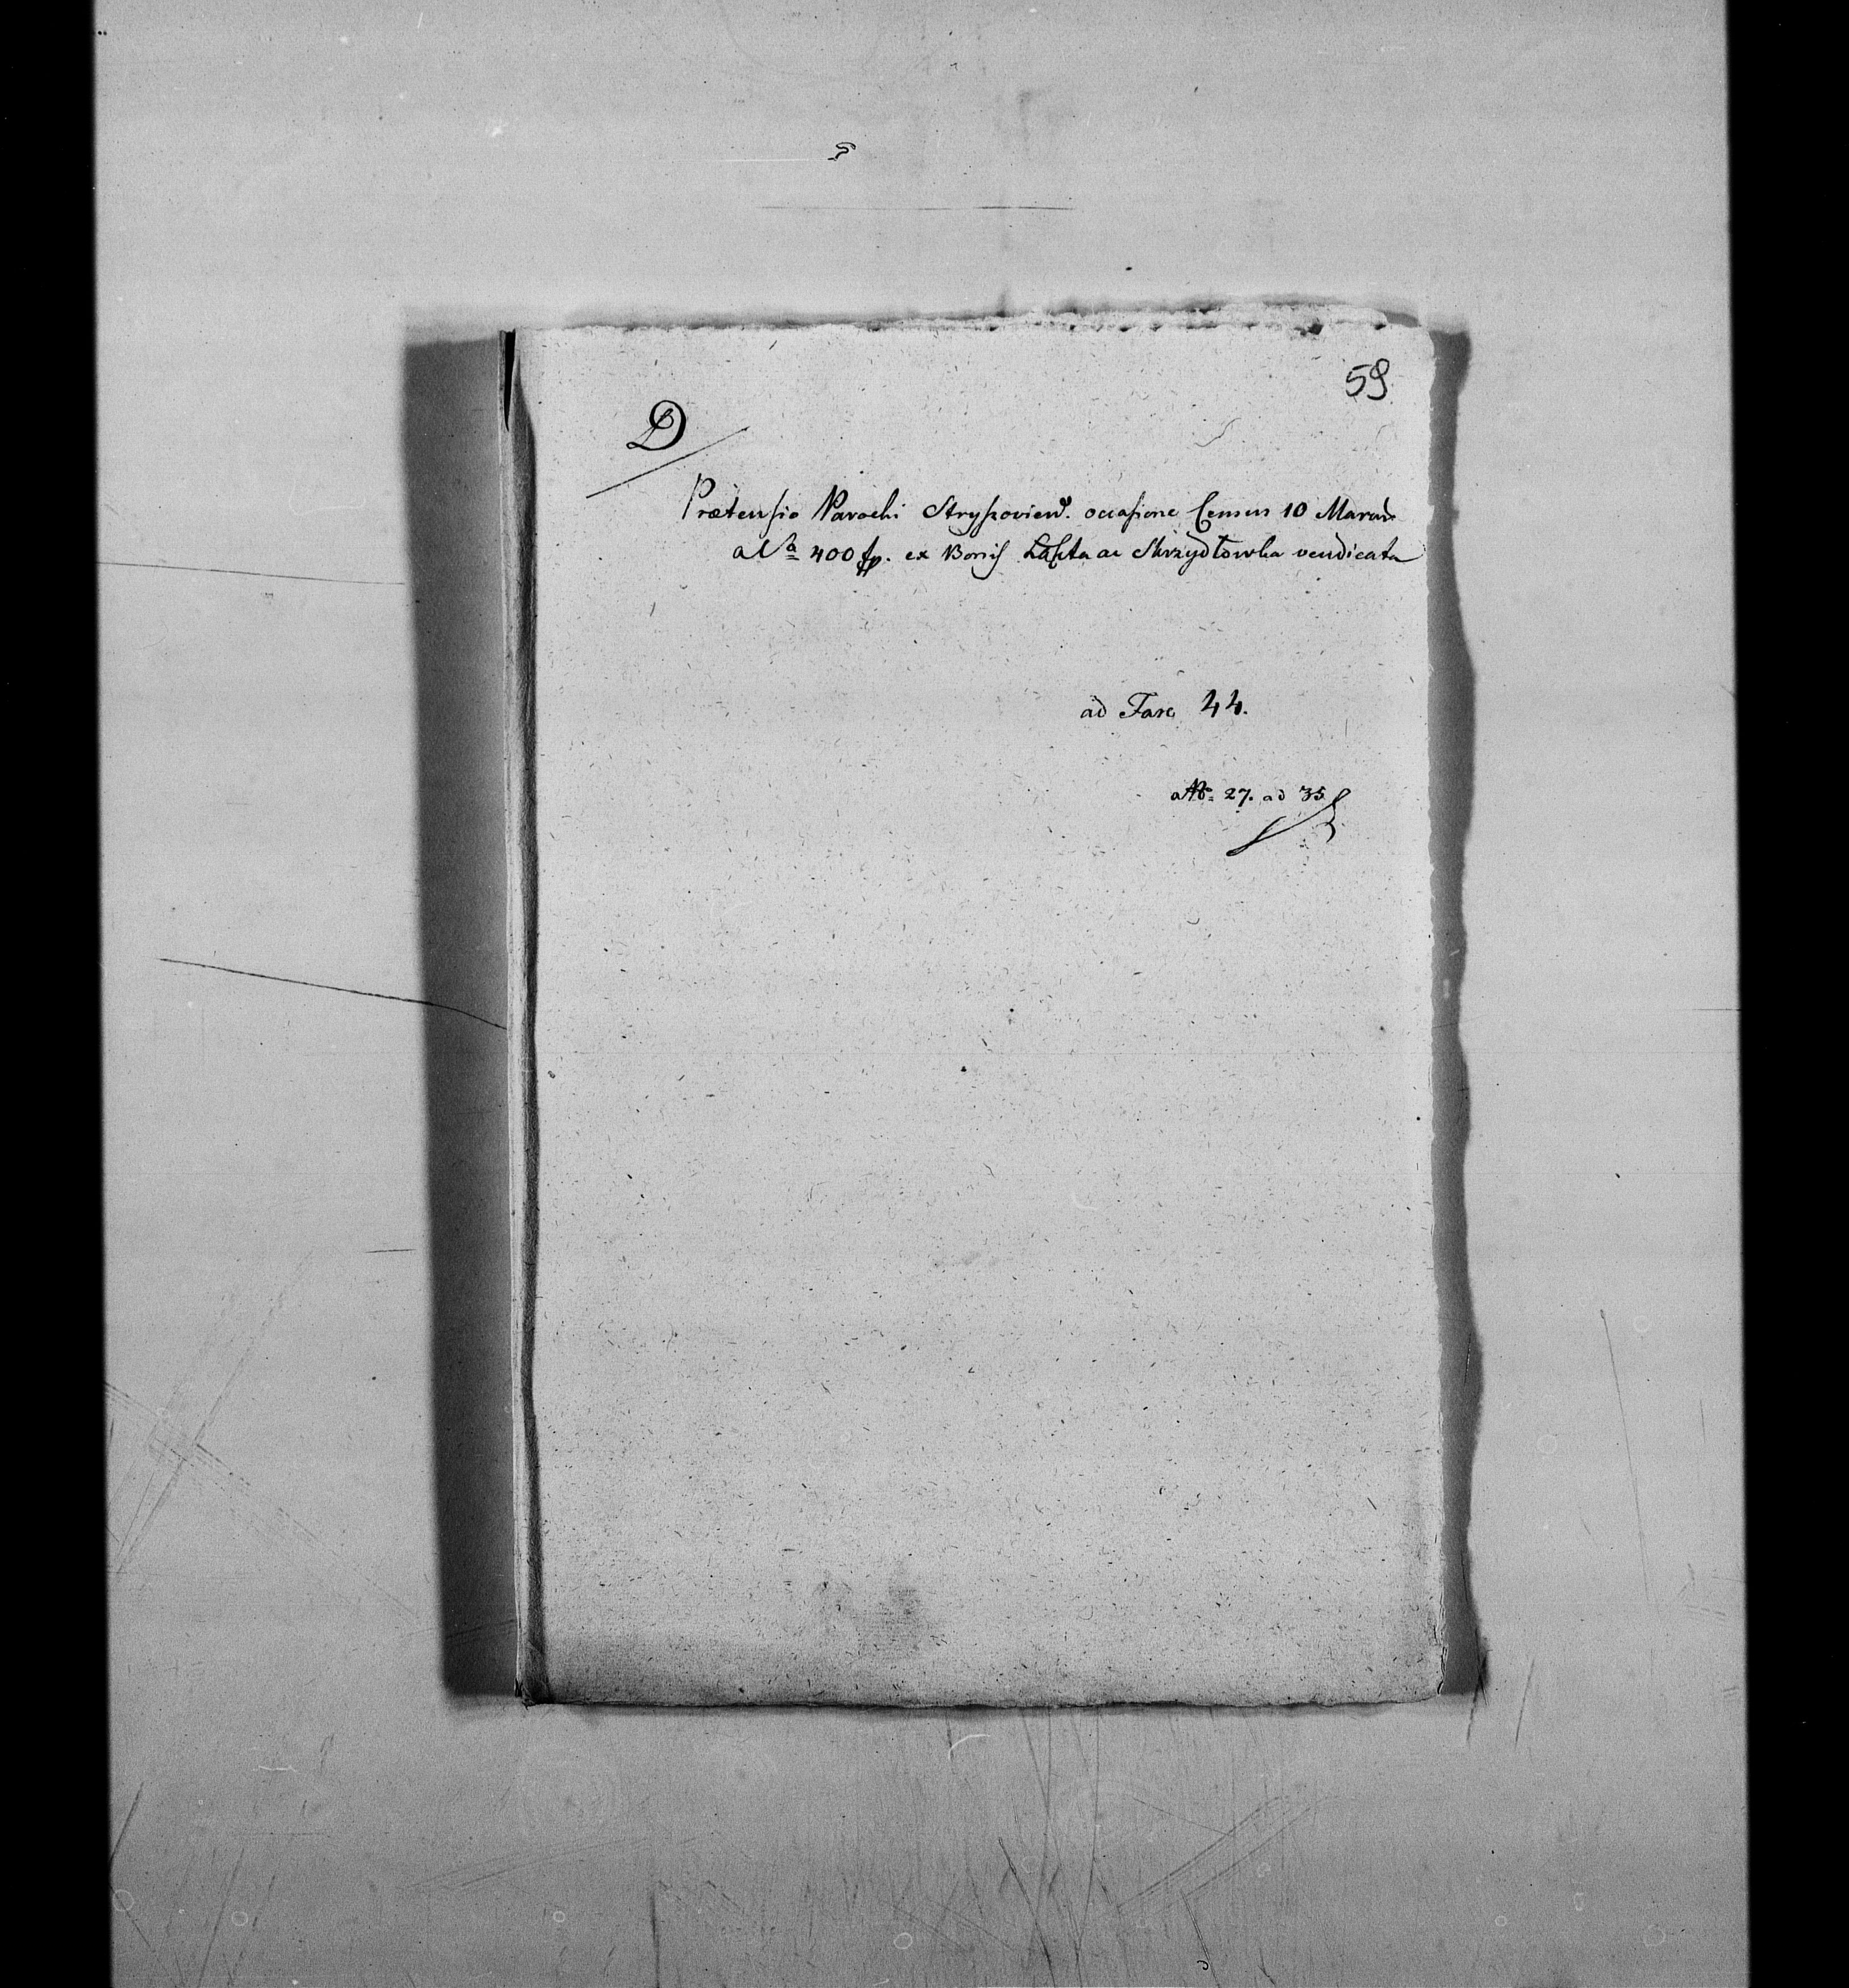 59
D
Prætensio Parochi Strypoviens. occasione Census 10 Marcar.
a Sa 400 fp. ex Bonis Łapta ac Skrzydłowka vendicata
ad Fasc 44.
a No 27. ad 35